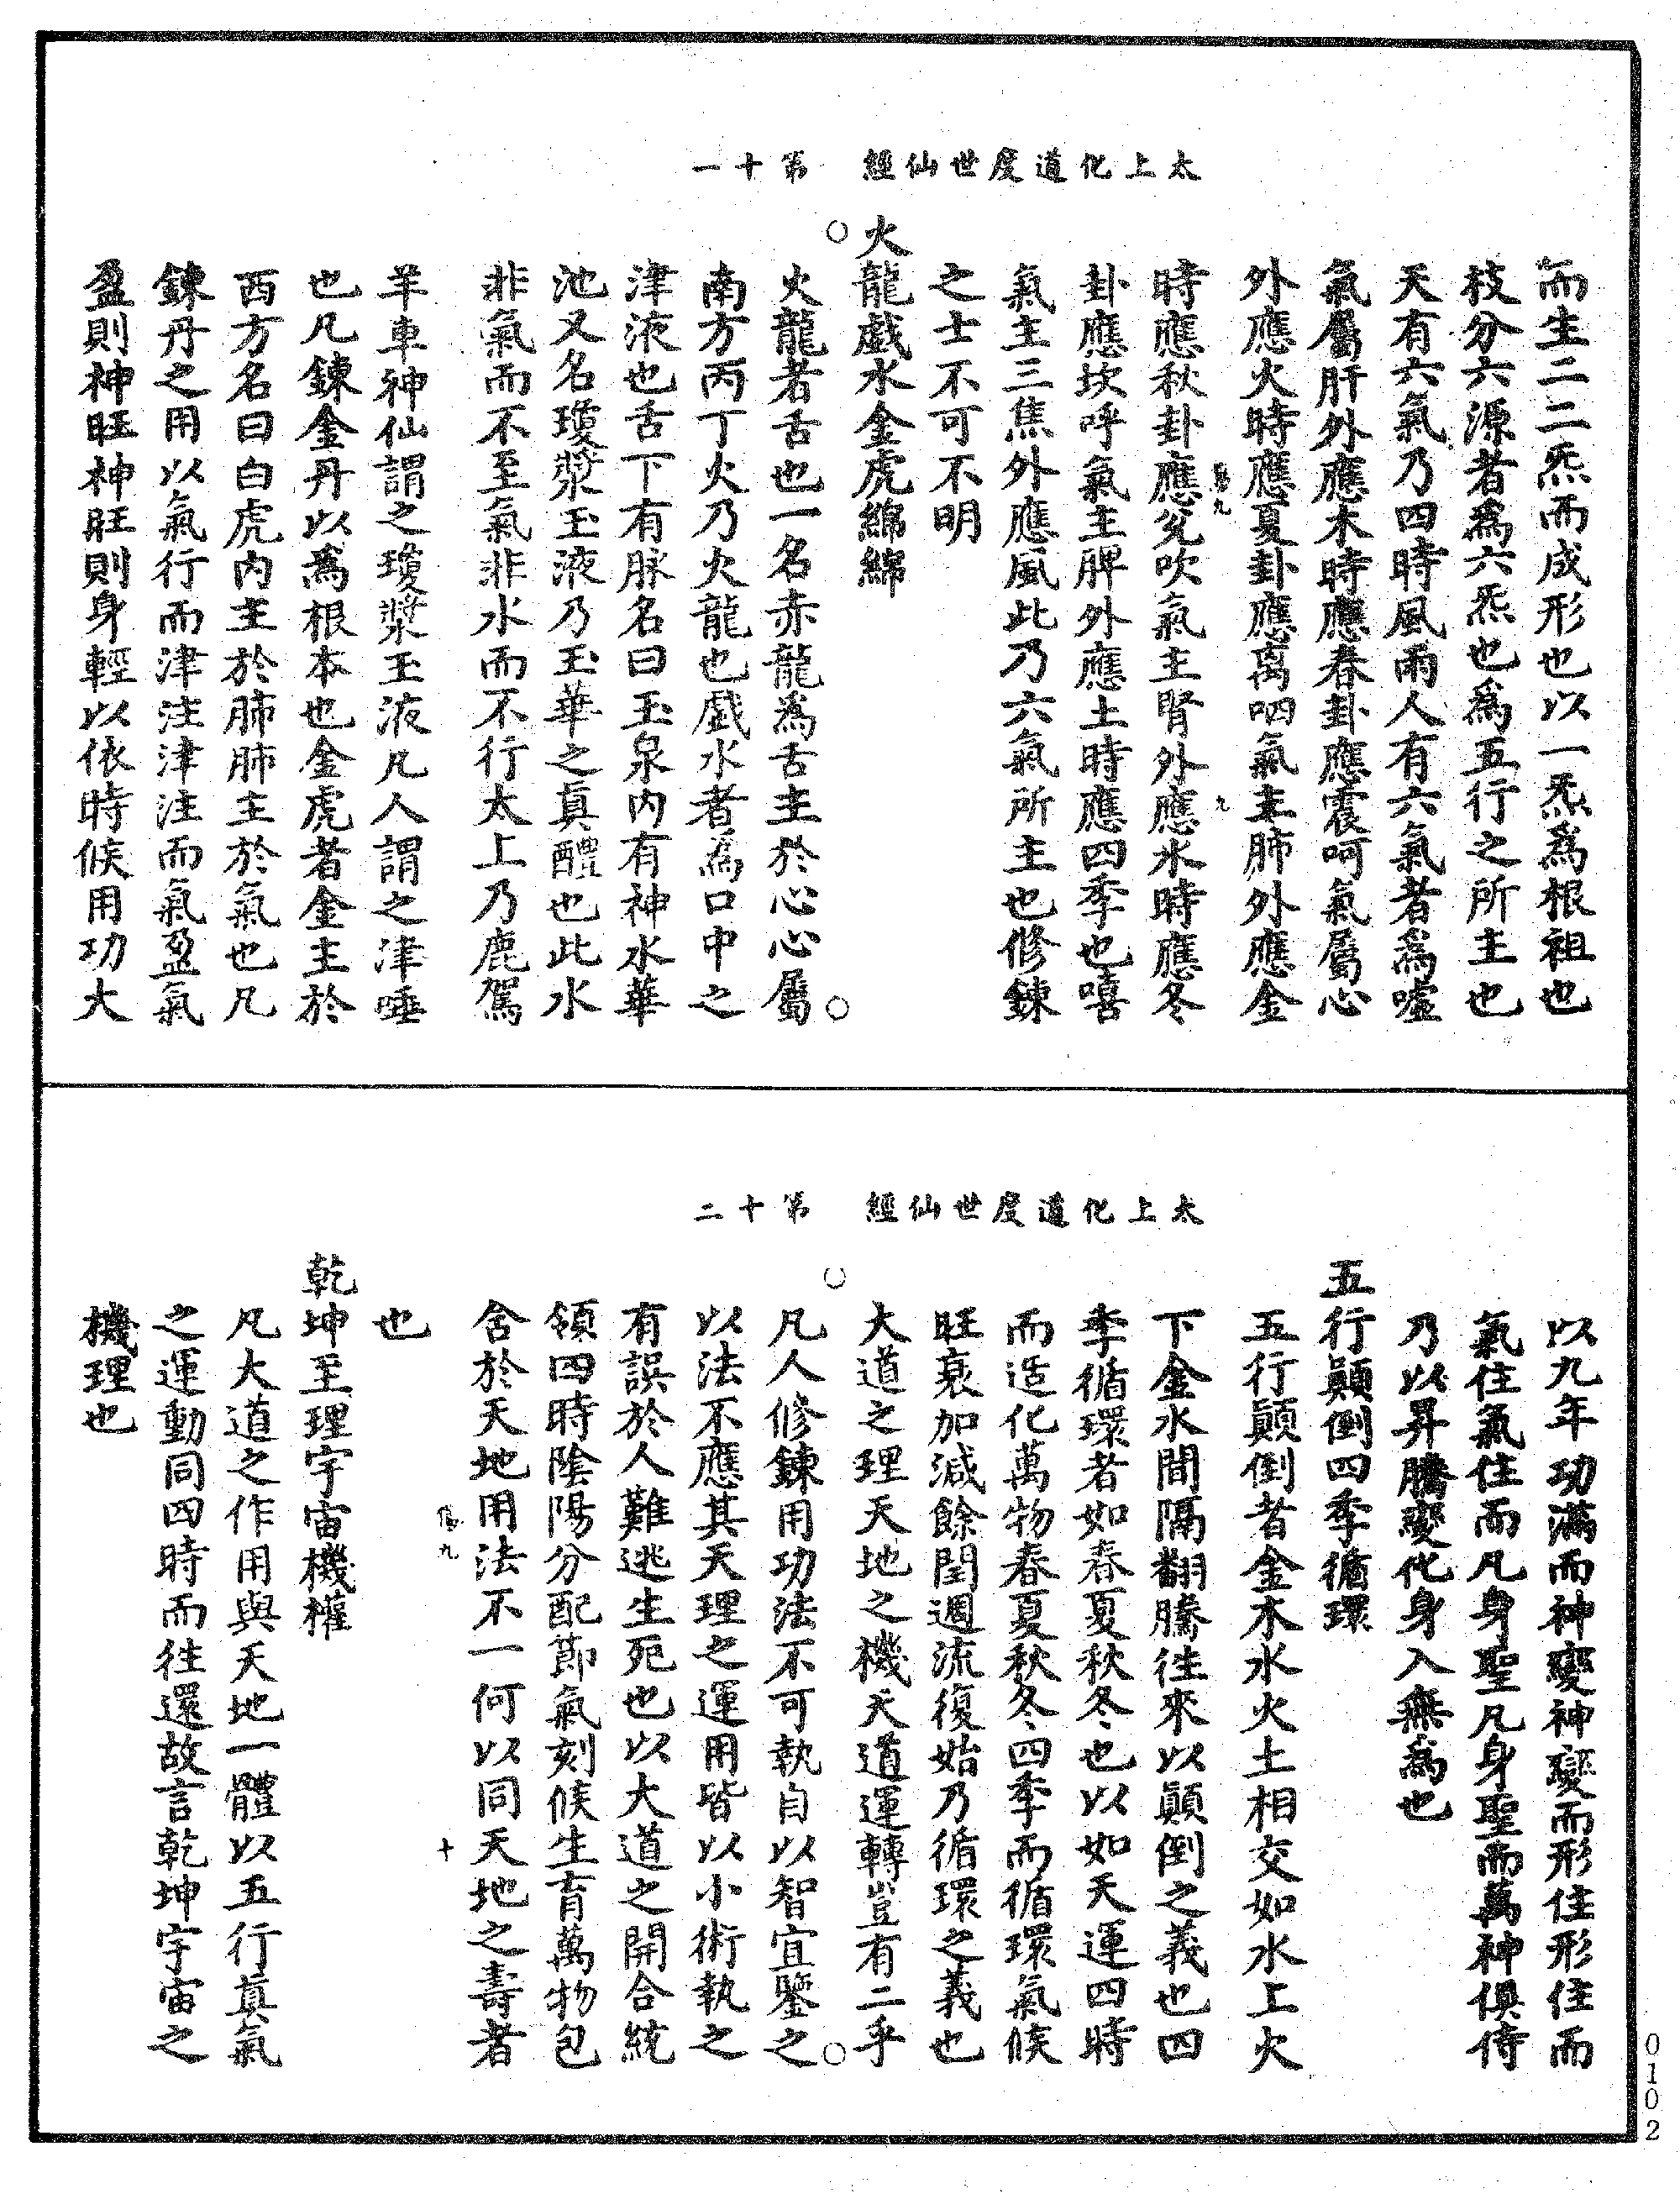 太上化道度世仙經　第十一
而生二二炁而成形也以一炁爲根祖也
枝分六源者爲六炁也爲五行之所主也
天有六氣乃四時風雨人有六氣者爲噓
氣屬肝外應木時應春卦應震呵氣屬心
外應火時應夏卦應离呬氣主肺外應金
時應秋卦應兌吹氣主腎外應水時應冬
卦應坎呼氣主脾外應土時應四季也嘻
氣主三焦外應風此乃六氣所主也修鍊
之士不可不明
火龍戲水金虎綿綿
火龍者舌也一名赤龍爲舌主於心心屬
南方丙丁火乃火龍也戲水者爲口中之
津液也舌下有脉名曰玉泉内有神水華
池又名瓊漿玉液乃玉華之真醴也此水
非氣而不至氣非水而不行太上乃鹿駕
羊車神仙謂之瓊漿玉液凡人謂之津唾
也凡鍊金丹以爲根本也金虎者金主於
西方名曰白虎内主於肺肺主於氣也凡
鍊丹之用以氣行而津注津注而氣盈氣
盈則神旺神旺則身輕以依時候用功大
太上化道度世仙經　第十二
以九年功滿而神變神變而形住形住而
氣住氣住而凡身聖凡身聖而萬神俱侍
乃以昇騰變化身入無爲也
五行顛倒四季循環
五行顛倒者金木水火土相交如水上火
下金水間隔翻騰往來以顛倒之義也四
季循環者如春夏秋冬也以如天運四時
而造化萬物春夏秋冬四季而循環氣候
旺衰加減餘閏週流復始乃循環之義也
大道之理天地之機天道運轉豈有二乎
凡人修鍊用功法不可執自以智宜鑒之
以法不應其天理之運用皆以小術執之
有誤於人難逃生死也以大道之開合統
領四時陰陽分配節氣刻候生育萬物包
含於天地用法不一何以同天地之壽者
九
十
也
乾坤至理宇宙機權
凡大道之作用與天地一體以五行真氣
之運動同四時而往還故言乾坤宇宙之
機理也
0102